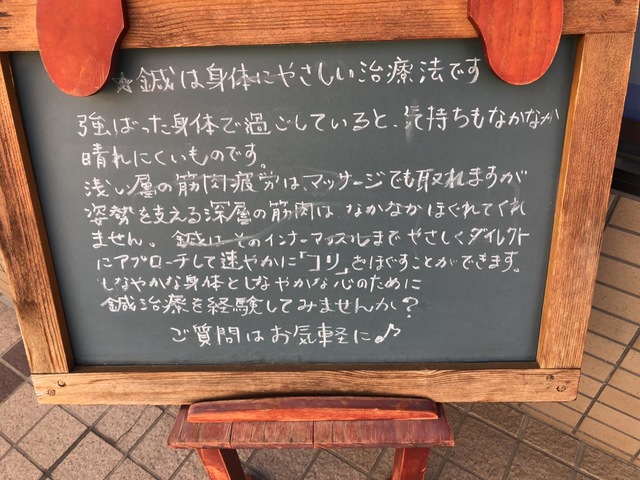 ☆鍼は身体にやさしい治療法です
強ばった身体で過ごしていると、気持ちもなかなか
晴れにくいものです。
浅い層の筋肉疲労は、マッサージでも取れますが
姿勢を支える深層の筋肉は、なかなかほぐれてくれ
ません。鍼はそのインナーマッスルまでやさしくダイレクト
にアプローチして速やかに「コリ」をほぐすことができます。
しなやかな身体としなやかな心のために
鍼治療を経験してみませんか?
ご質問はお気軽に♪